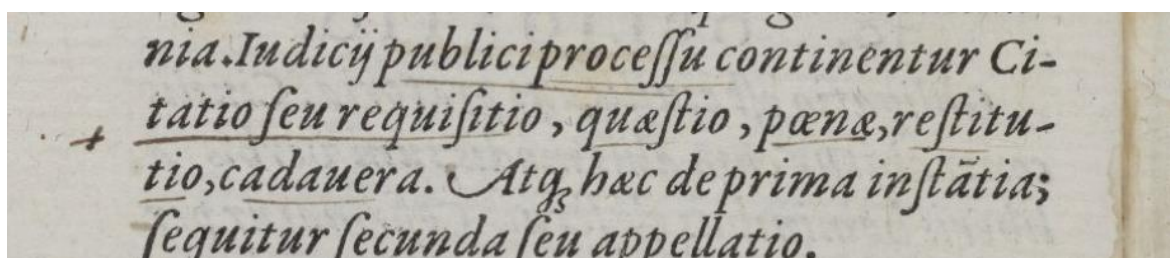 nia. Iudicij publici processu continentur Ci-
tatio seu requisitio, quæstio, pœnæ, restitu-
tio, cadauera. Atq; hæc de prima instātia;
sequitur secunda seu appellatio.